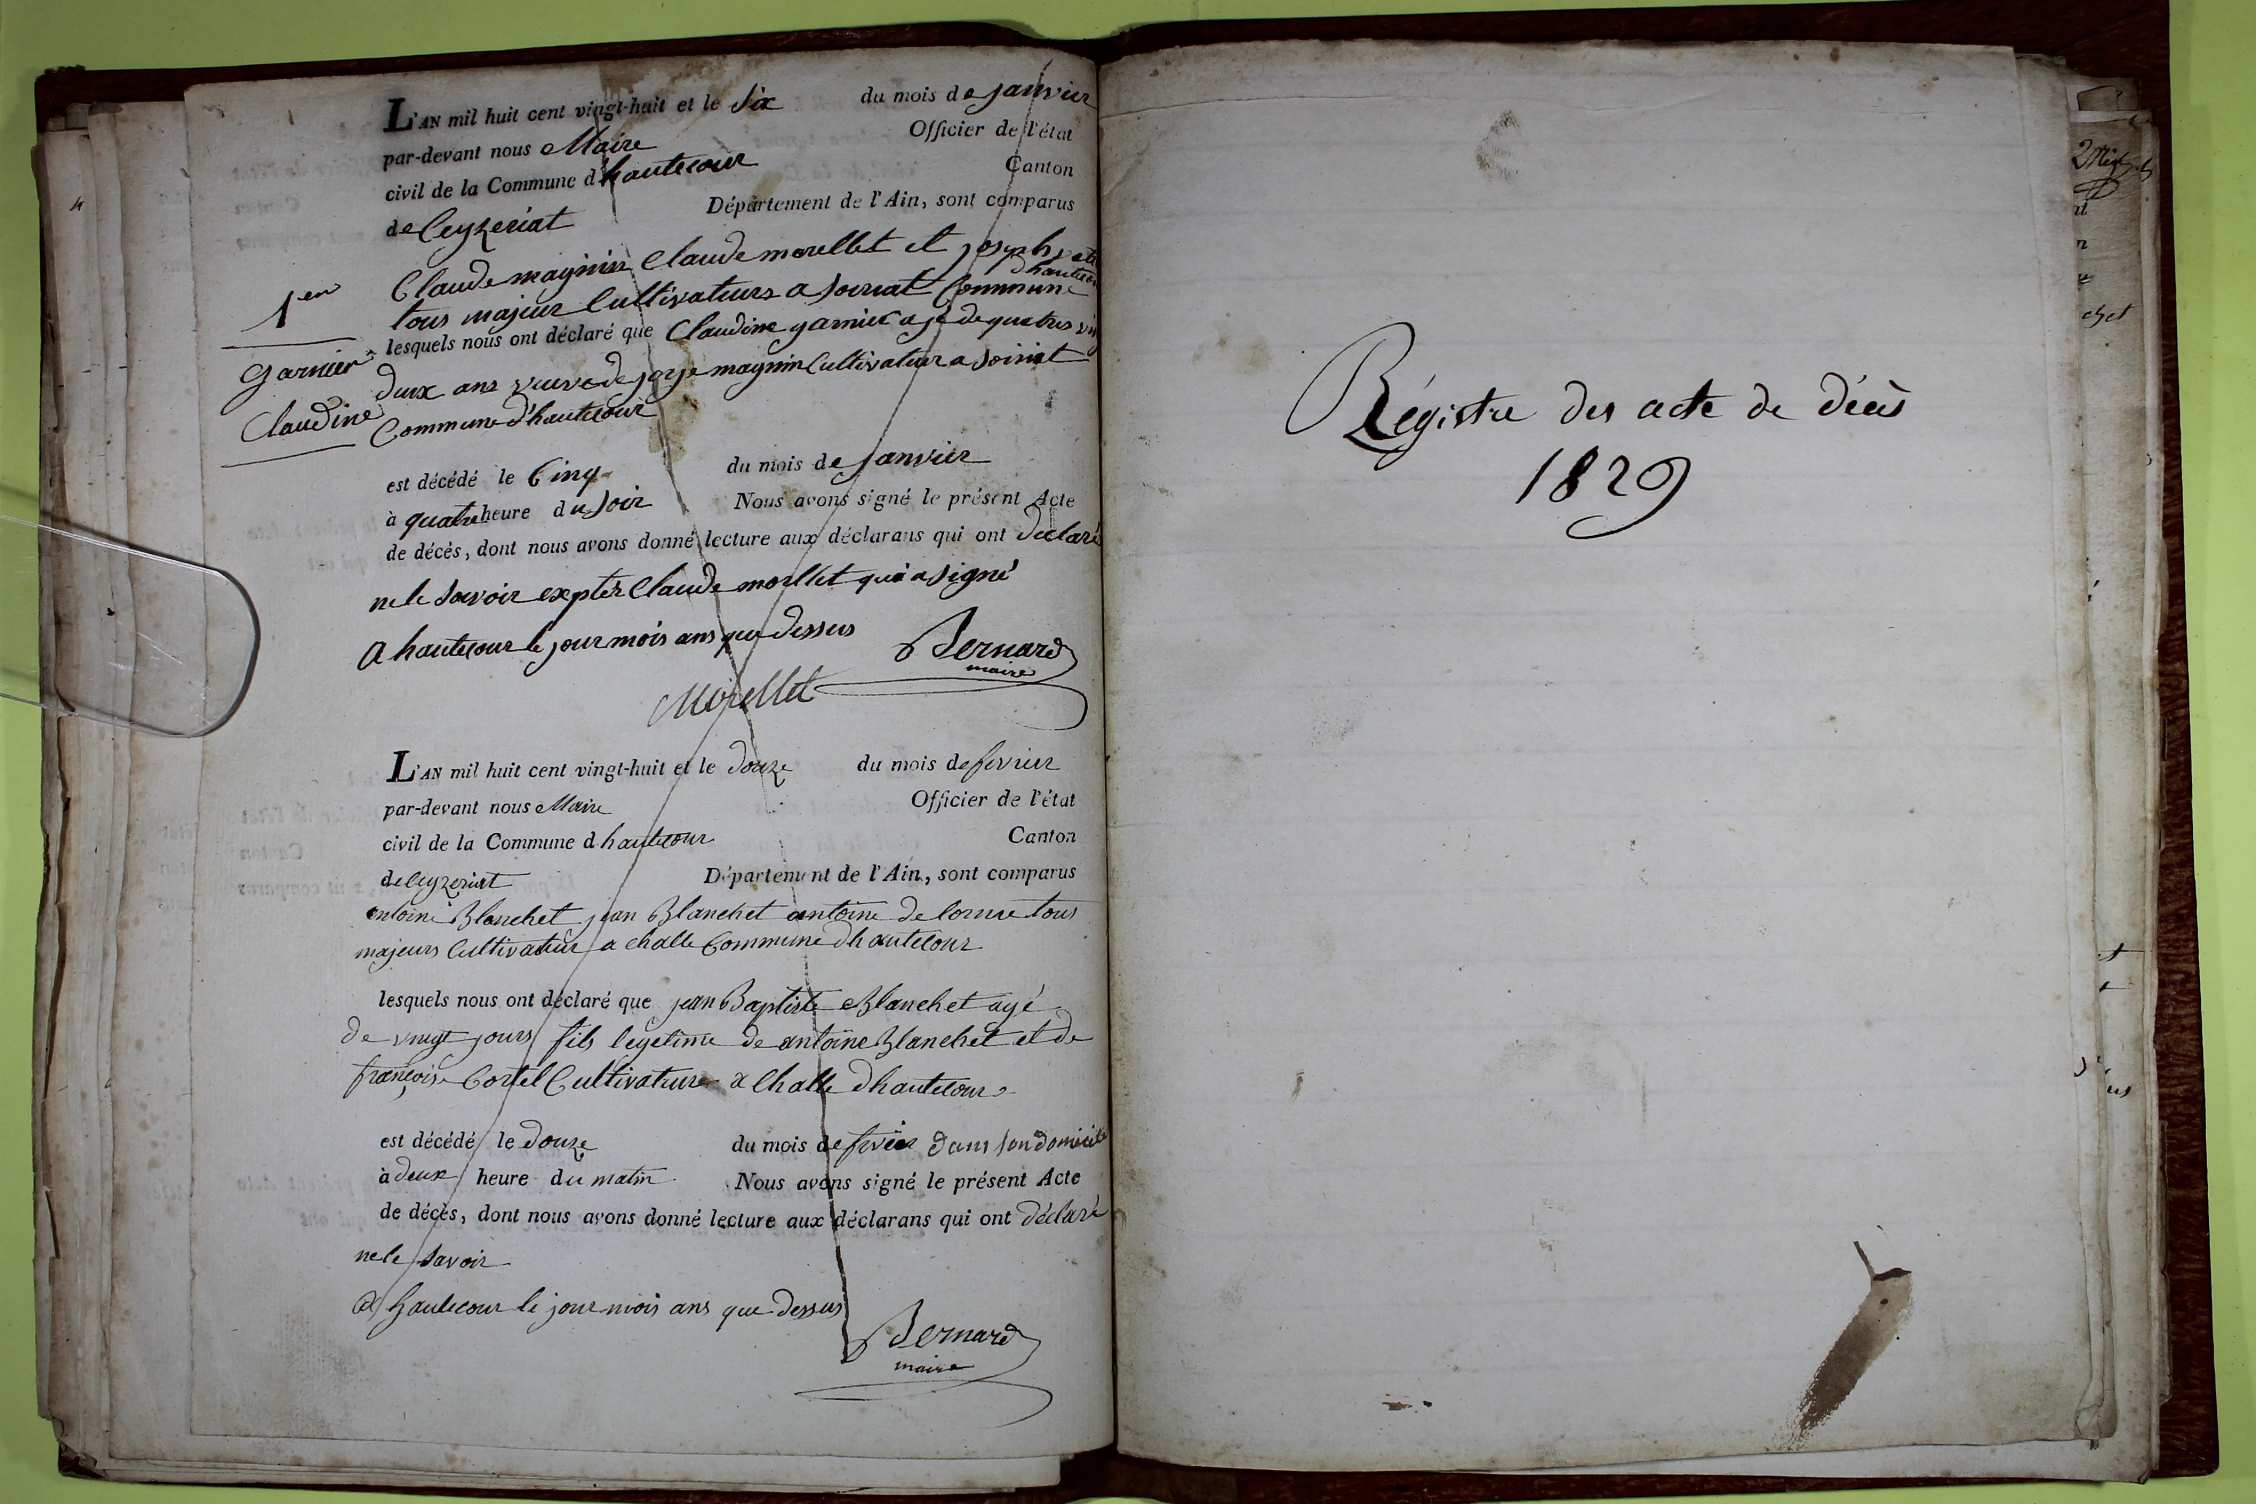 L'AN mil huit cent vingt-huit et le six du mois de janvier
par-devant nous Maire Officier de l'état
civil de la Commune d hautecour Canton
de Ceyzeriat Département de l'Ain, sont comparus
Claude magnin Claude morellet et joseph
tous majeur Cultivateurs a soiriat Commune d'hautecour
1er
lesquels nous ont déclaré que Claudine garnier agé de quatres
Garnier
deux ans veuve de magnin Cultivateur a soiriat
Claudine
Commune d'hautecour
est décédé le Cinq du mois de janvier
à quatre heure du soir Nous avons signé le présent Acte
de décès, dont nous avons donné lecture aux déclarans qui ont declaré
ne le savoir expter Claude morllet qui a signé
A hautecour le jour mois ans que dessus
Bernard
maire
Morellet
L'AN mil huit cent vingt-huit et le douze du mois de fevrier
par-devant nous Maire Officier de l'état
civil de la Commune d hautecour Canton
de Ceyzeriat Département de l'Ain, sont comparus
antoine Blanchet jean Blanchet antoine Delorme tous
majeurs Cultivateur a Challe Commune dhautecour
lesquels nous ont déclaré que jean Baptiste Blanchet agé
de vingt jours fils legetime de antoine Blanchet et de
françoise Cortel Cultivateure a Challe dhautecour
est décédé le douze du mois de fevrier dans son domicile
à deux heure du matin Nous avons signé le présent Acte
de décès, dont nous avons donné lecture aux déclarans qui ont déclaré
ne le savoir
A hautecour le jour mois ans que dessus
Bernard
maire
Régistre des acte de décès
1829